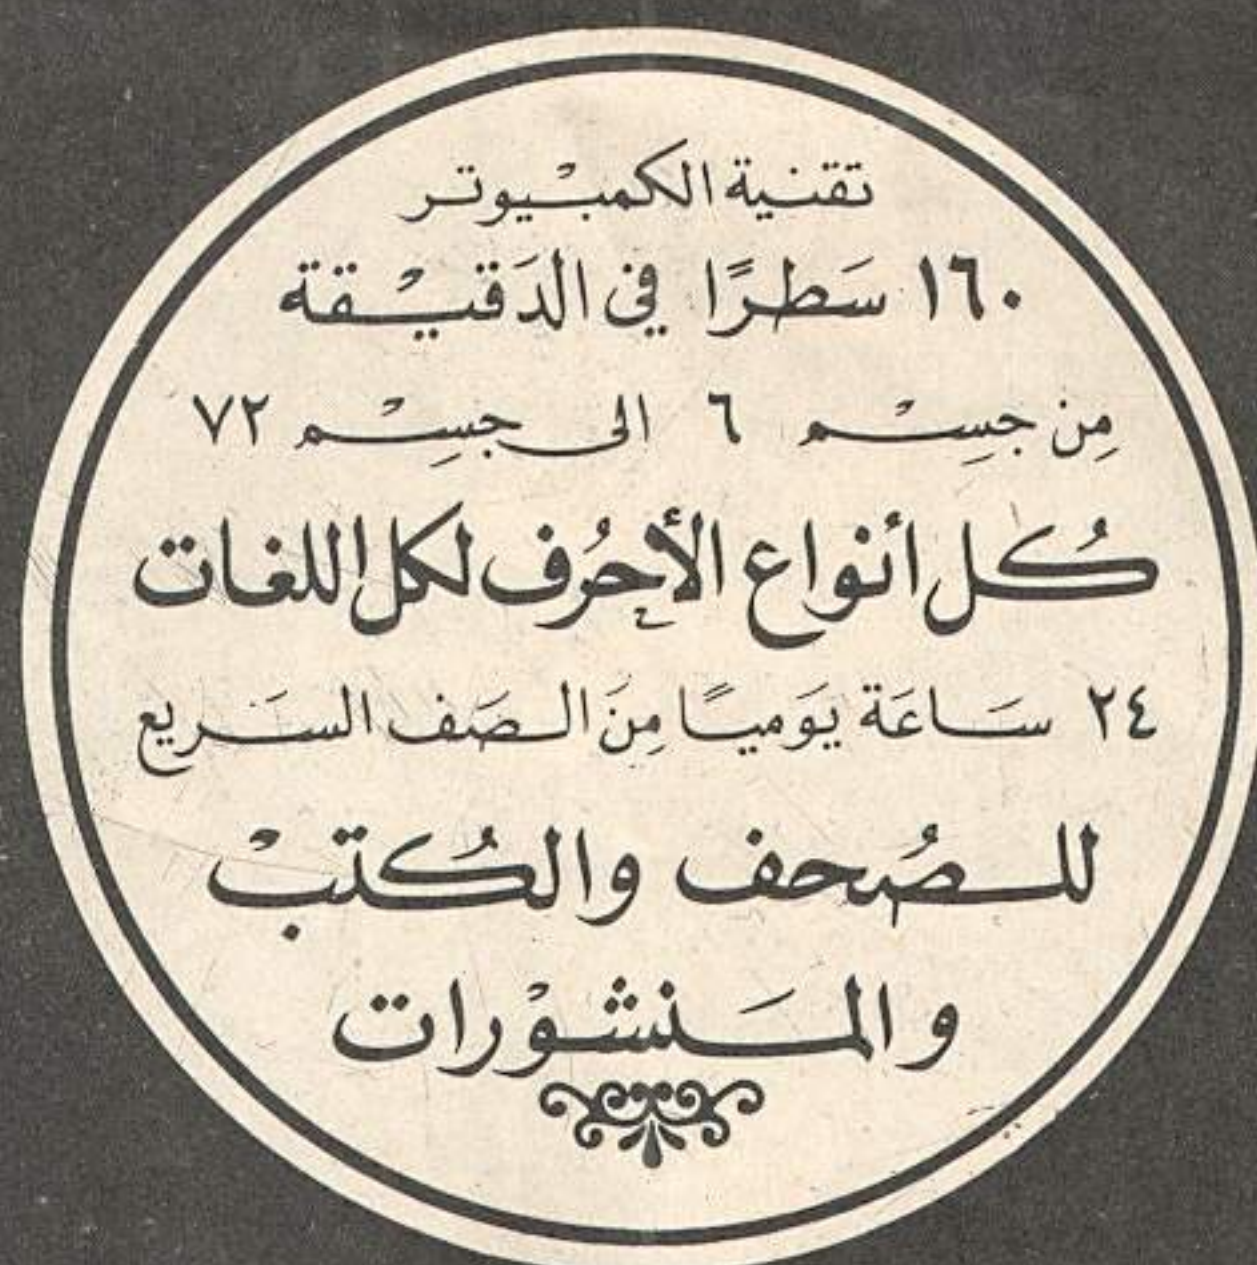 تقنية الكمبيوتر
١٦٠ سَطرًا في الدَقيقة
مِن جسِم ٦ الى جسِم ٧٢
كُل أنواع الأحرُف لكل اللغات
٢٤ سَاعَة يَوميًا مِنَ الصَف السَريع
للصُحف والكُتبْ
والمَنشوْرات